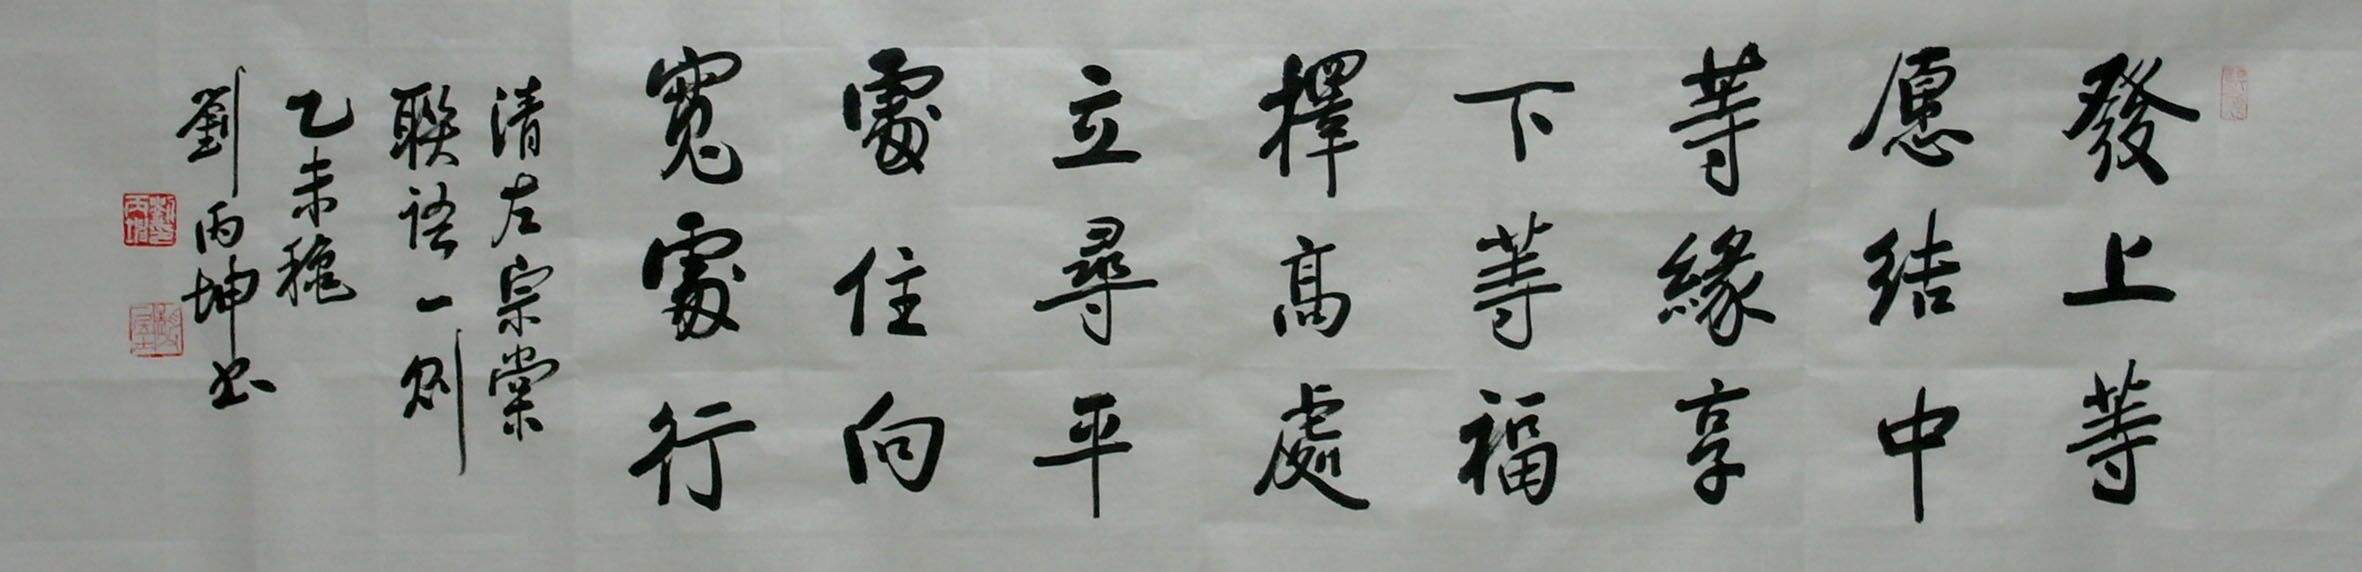 發上等
愿结中
等緣享
下等福
擇高處
立尋平
處住向
寬處行
清左宗棠
聯语一则
乙未秋
劉丙坤书